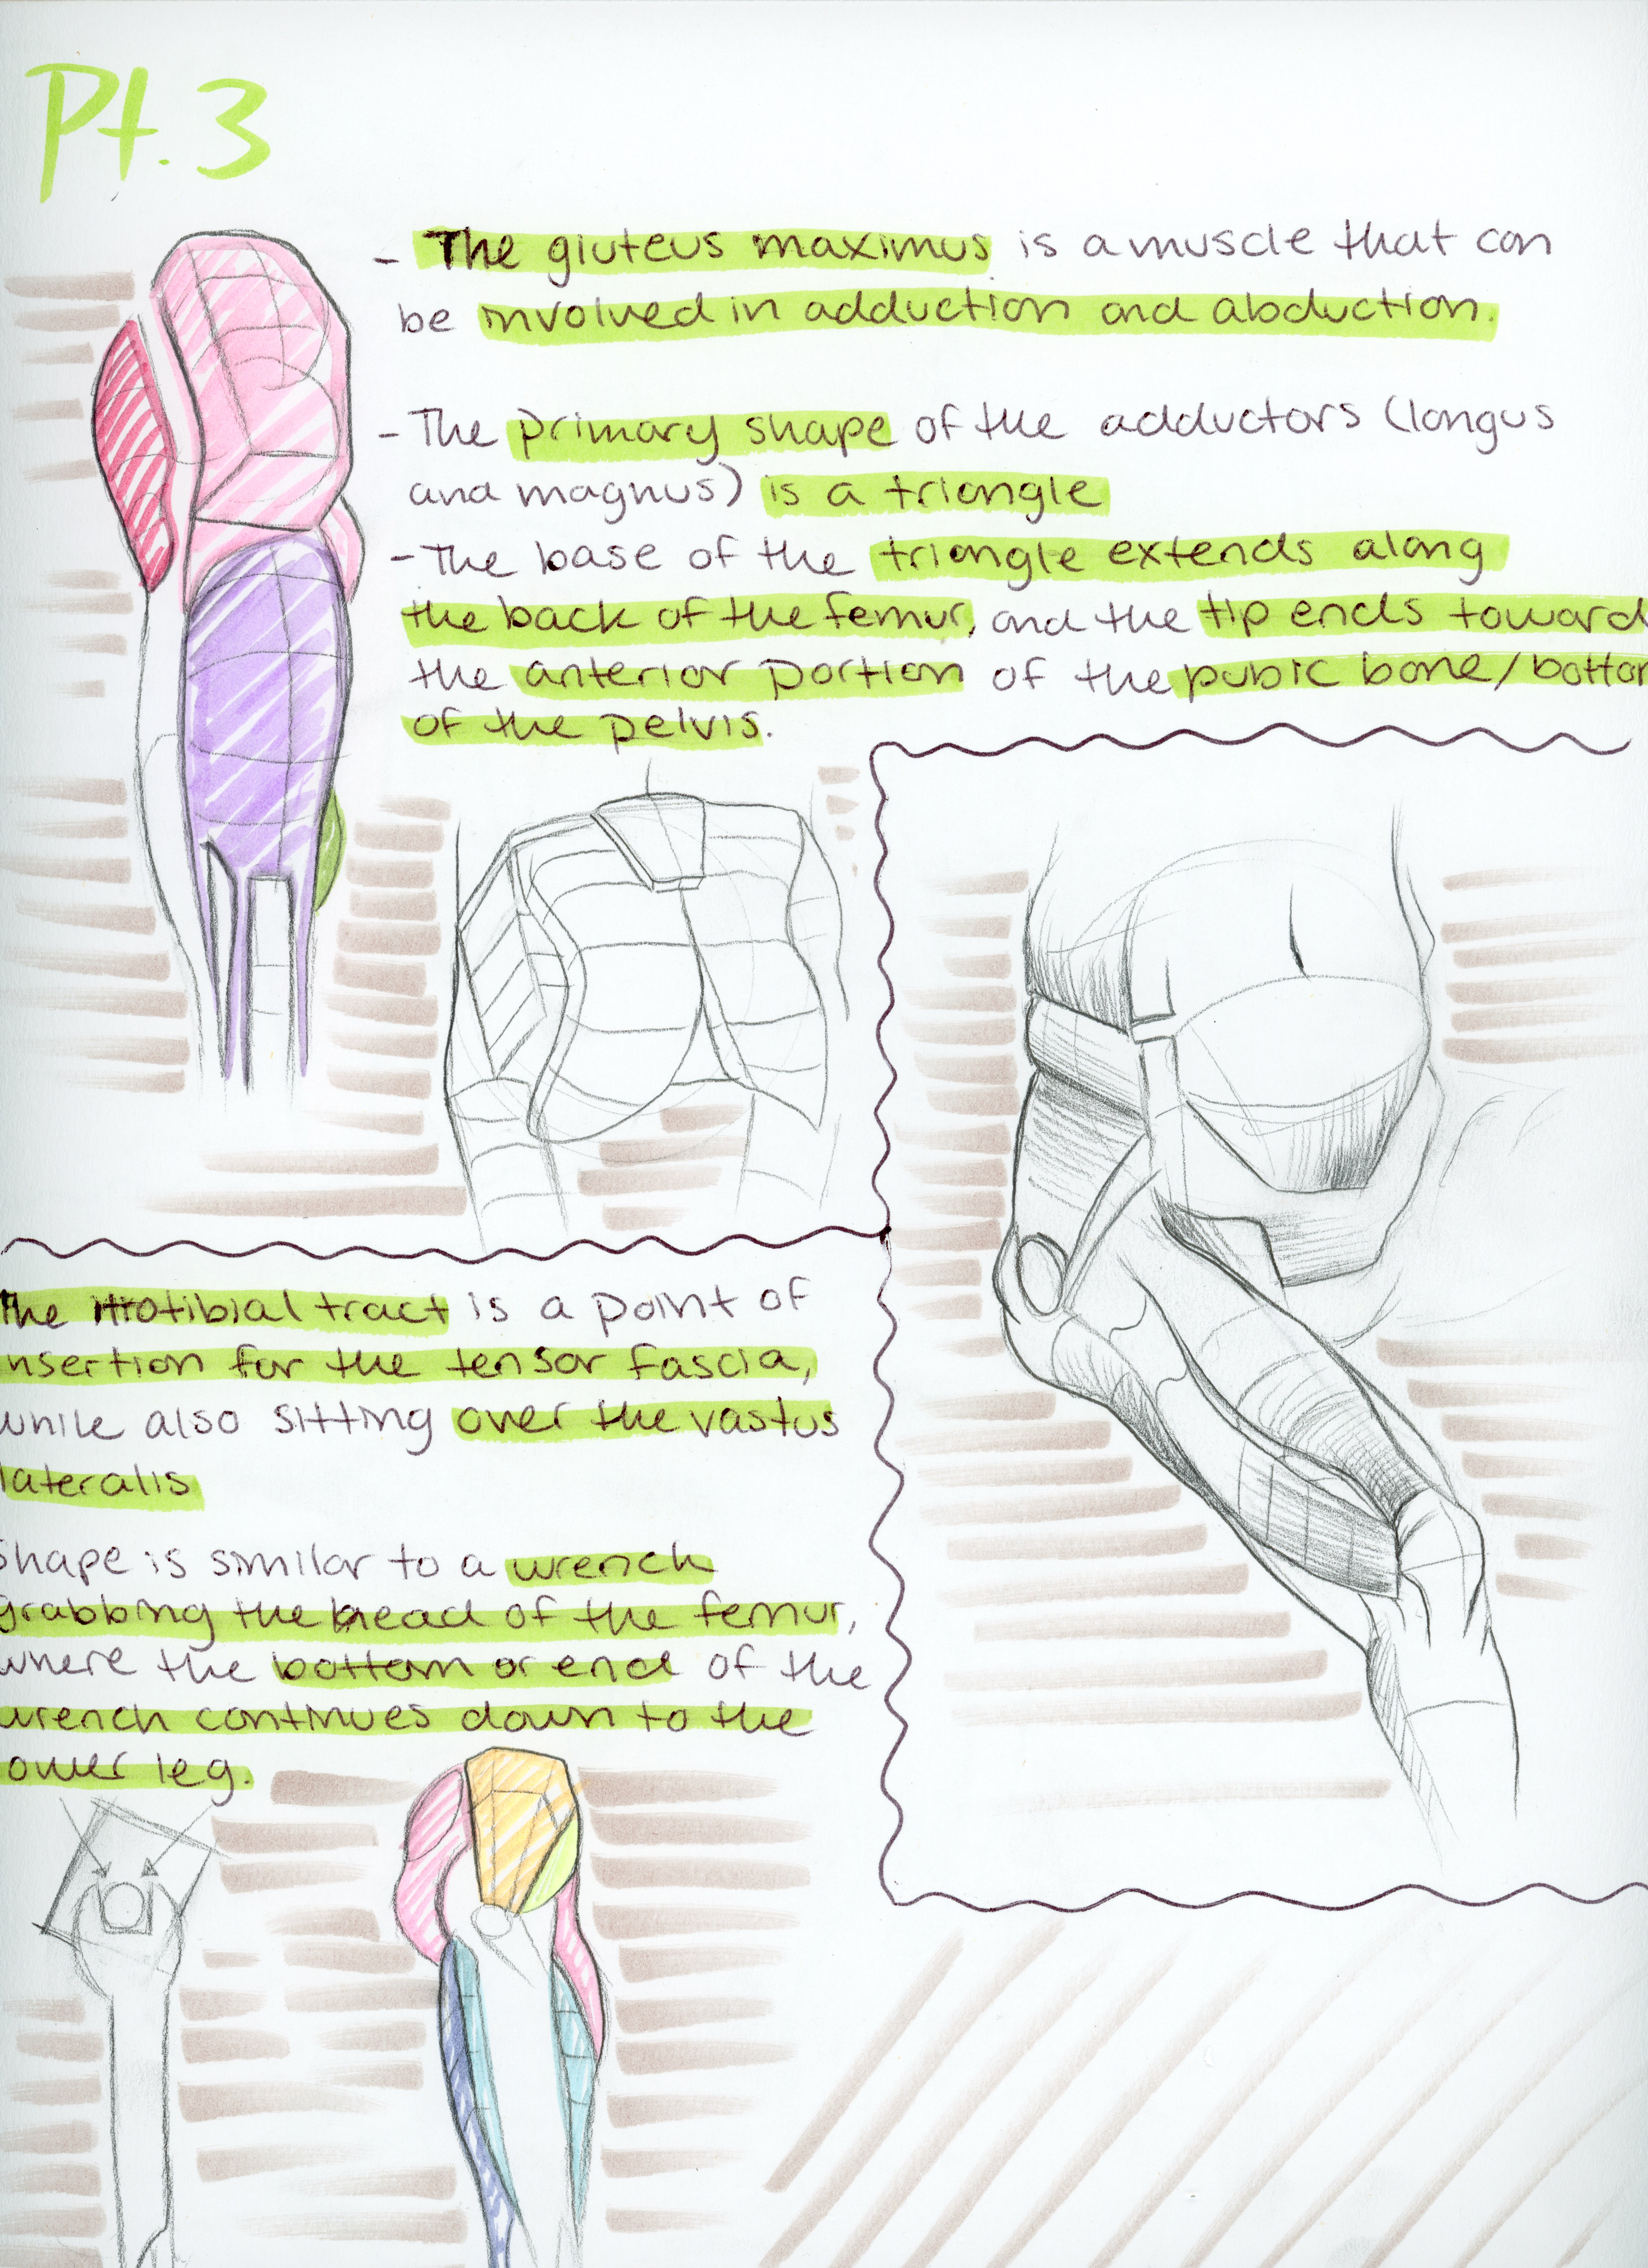 Pt. 3
- The gluteus maximus is a muscle that can
be involved in adduction and abduction.
- The primary shape of the adductors (longus
and magnus) is a triangle
- The base of the triangle extends along
the back of the femur, and the tip ends toward
the anterior portion of the pubic bone/bottom
of the pelvis.
The iliotibial tract is a point of
insertion for the tensor fascia,
while also sitting over the vastus
lateralis
Shape is similar to a wrench
grabbing the head of the femur,
where the bottom or end of the
wrench continues down to the
lower leg.